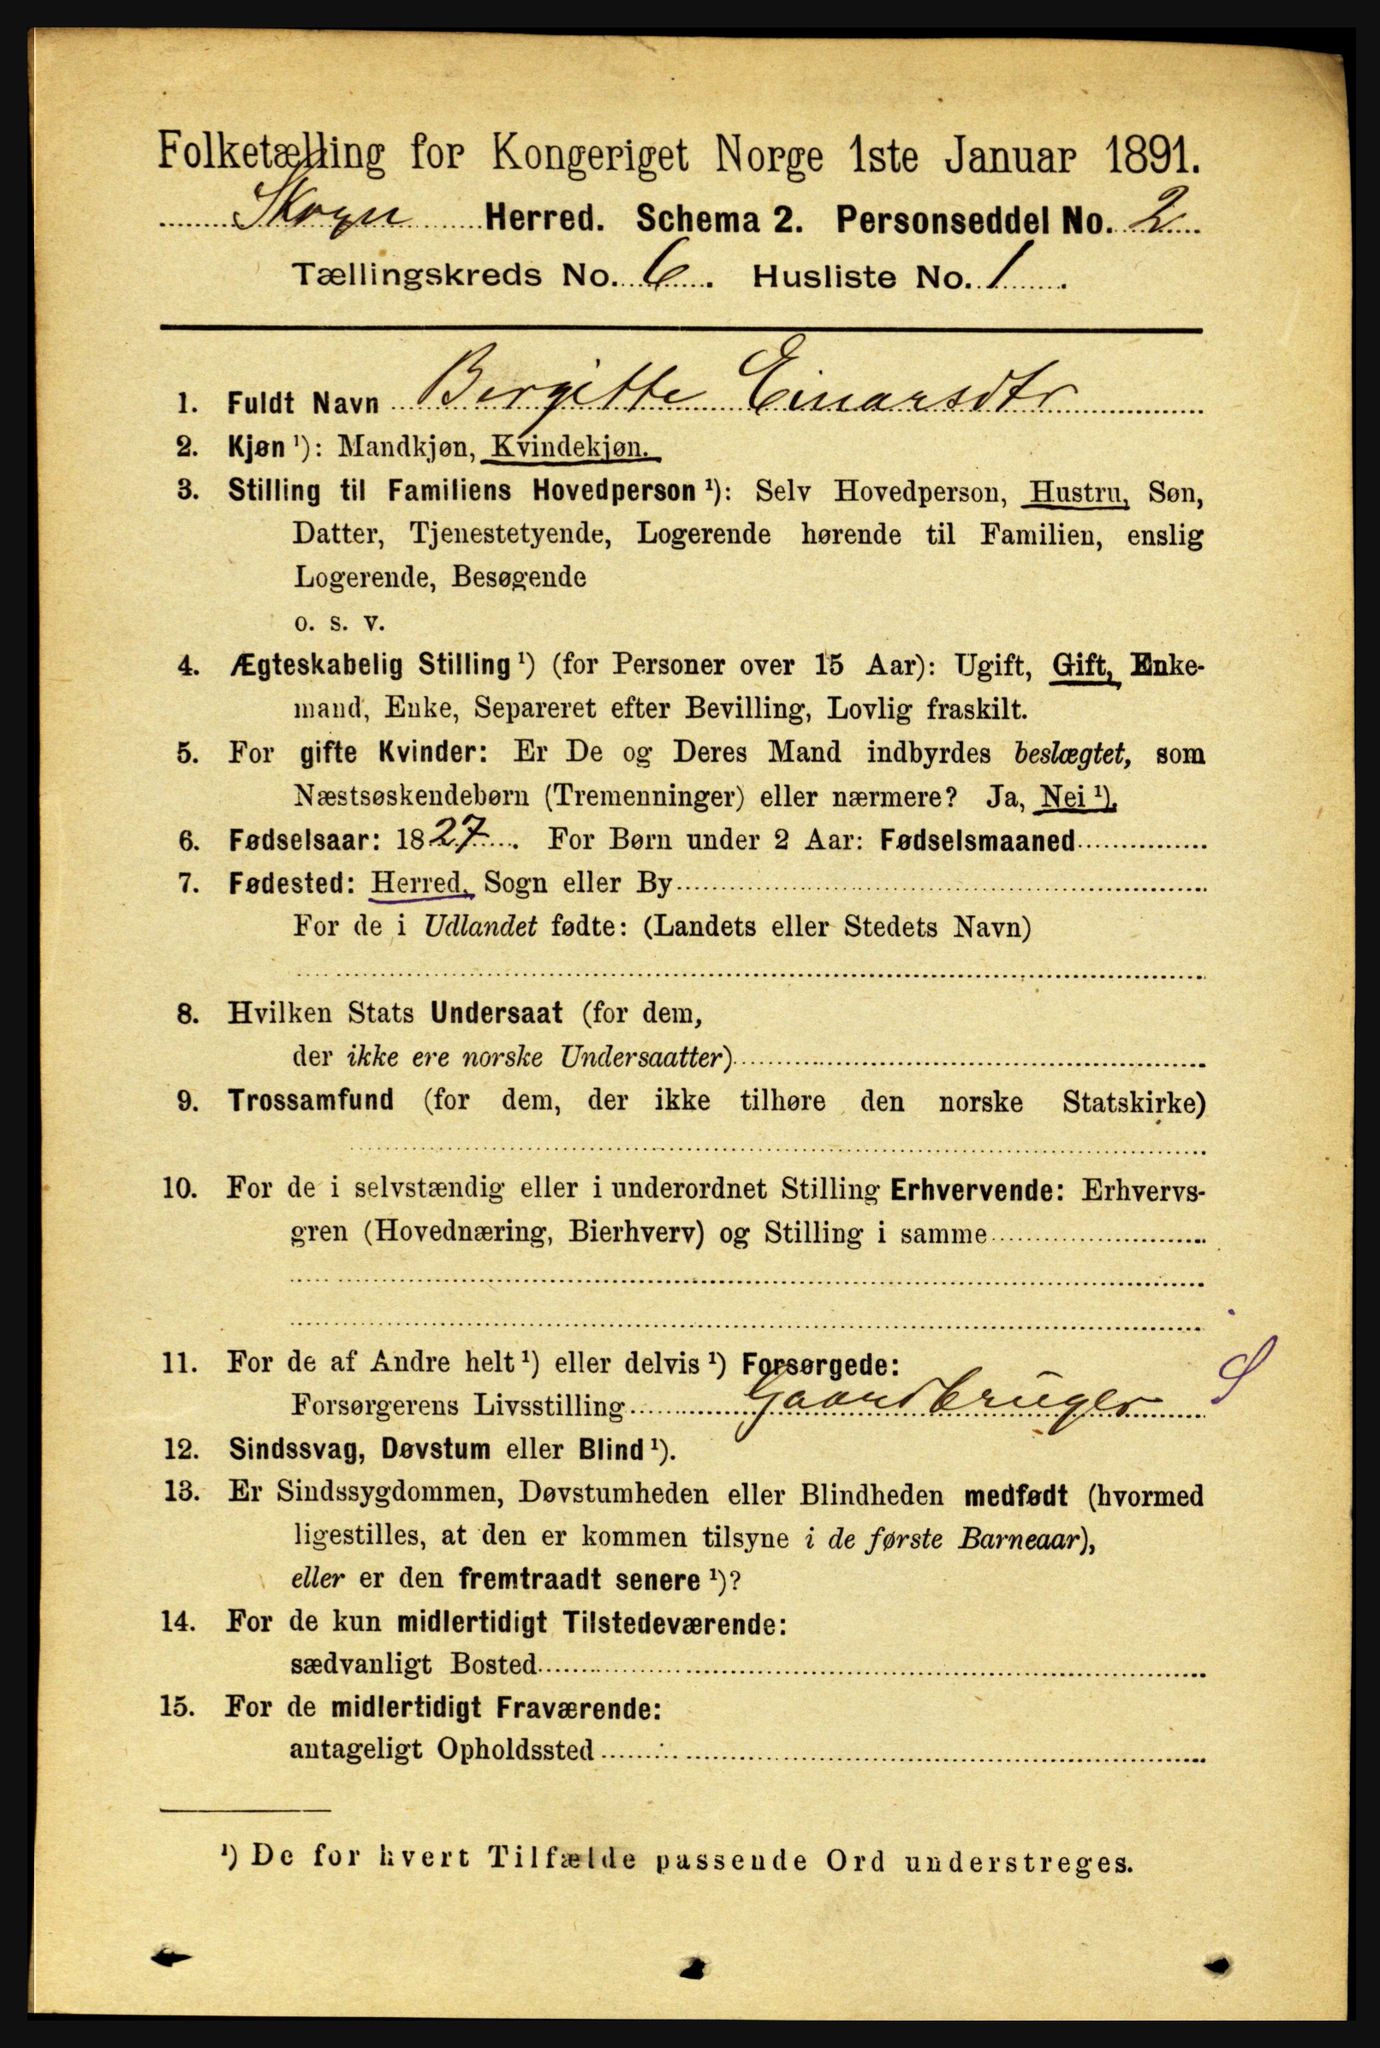 Folketælling for Kongeriget Norge 1ste Januar 1891.
Skogn Herred. Schema 2. Personseddel No. 2
Tællingskreds No. 6. Husliste No. 1
1. Fuldt Navn Bergitte Einarsdtr
2. Kjøn ¹): Mandkjøn, Kvindekjøn.
3. Stilling til Familiens Hovedperson ¹): Selv Hovedperson, Hustru, Søn,
Datter, Tjenestetyende, Logerende hørende til Familien, enslig
Logerende, Besøgende
o. s. v.
4. Ægteskabelig Stilling ¹) (for Personer over 15 Aar): Ugift, Gift, Enke-
mand, Enke, Separeret efter Bevilling, Lovlig fraskilt.
5. For gifte Kvinder: Er De og Deres Mand indbyrdes beslægtet, som
Næstsøskendebørn (Tremenninger) eller nærmere? Ja, Nei ¹),
6. Fødselsaar: 1827. For Børn under 2 Aar: Fødselsmaaned
7. Fødested: Herred, Sogn eller By
For de i Udlandet fødte: (Landets eller Stedets Navn)
8. Hvilken Stats Undersaat (for dem,
der ikke ere norske Undersaatter)
9. Trossamfund (for dem, der ikke tilhøre den norske Statskirke)
10. For de i selvstændig eller i underordnet Stilling Erhvervende: Erhvervs-
gren (Hovednæring, Bierhverv) og Stilling i samme
11. For de af Andre helt ¹) eller delvis ¹) Forsørgede:
Forsørgerens Livsstilling Gaardbruger S
12. Sindssvag, Døvstum eller Blind ¹).
13. Er Sindssygdommen, Døvstumheden eller Blindheden medfødt (hvormed
ligestilles, at den er kommen tilsyne i de første Barneaar),
eller er den fremtraadt senere ¹)?
14. For de kun midlertidigt Tilstedeværende:
sædvanligt Bosted
15. For de midlertidigt Fraværende:
antageligt Opholdssted
¹) De for hvert Tilfælde passende Ord understreges.